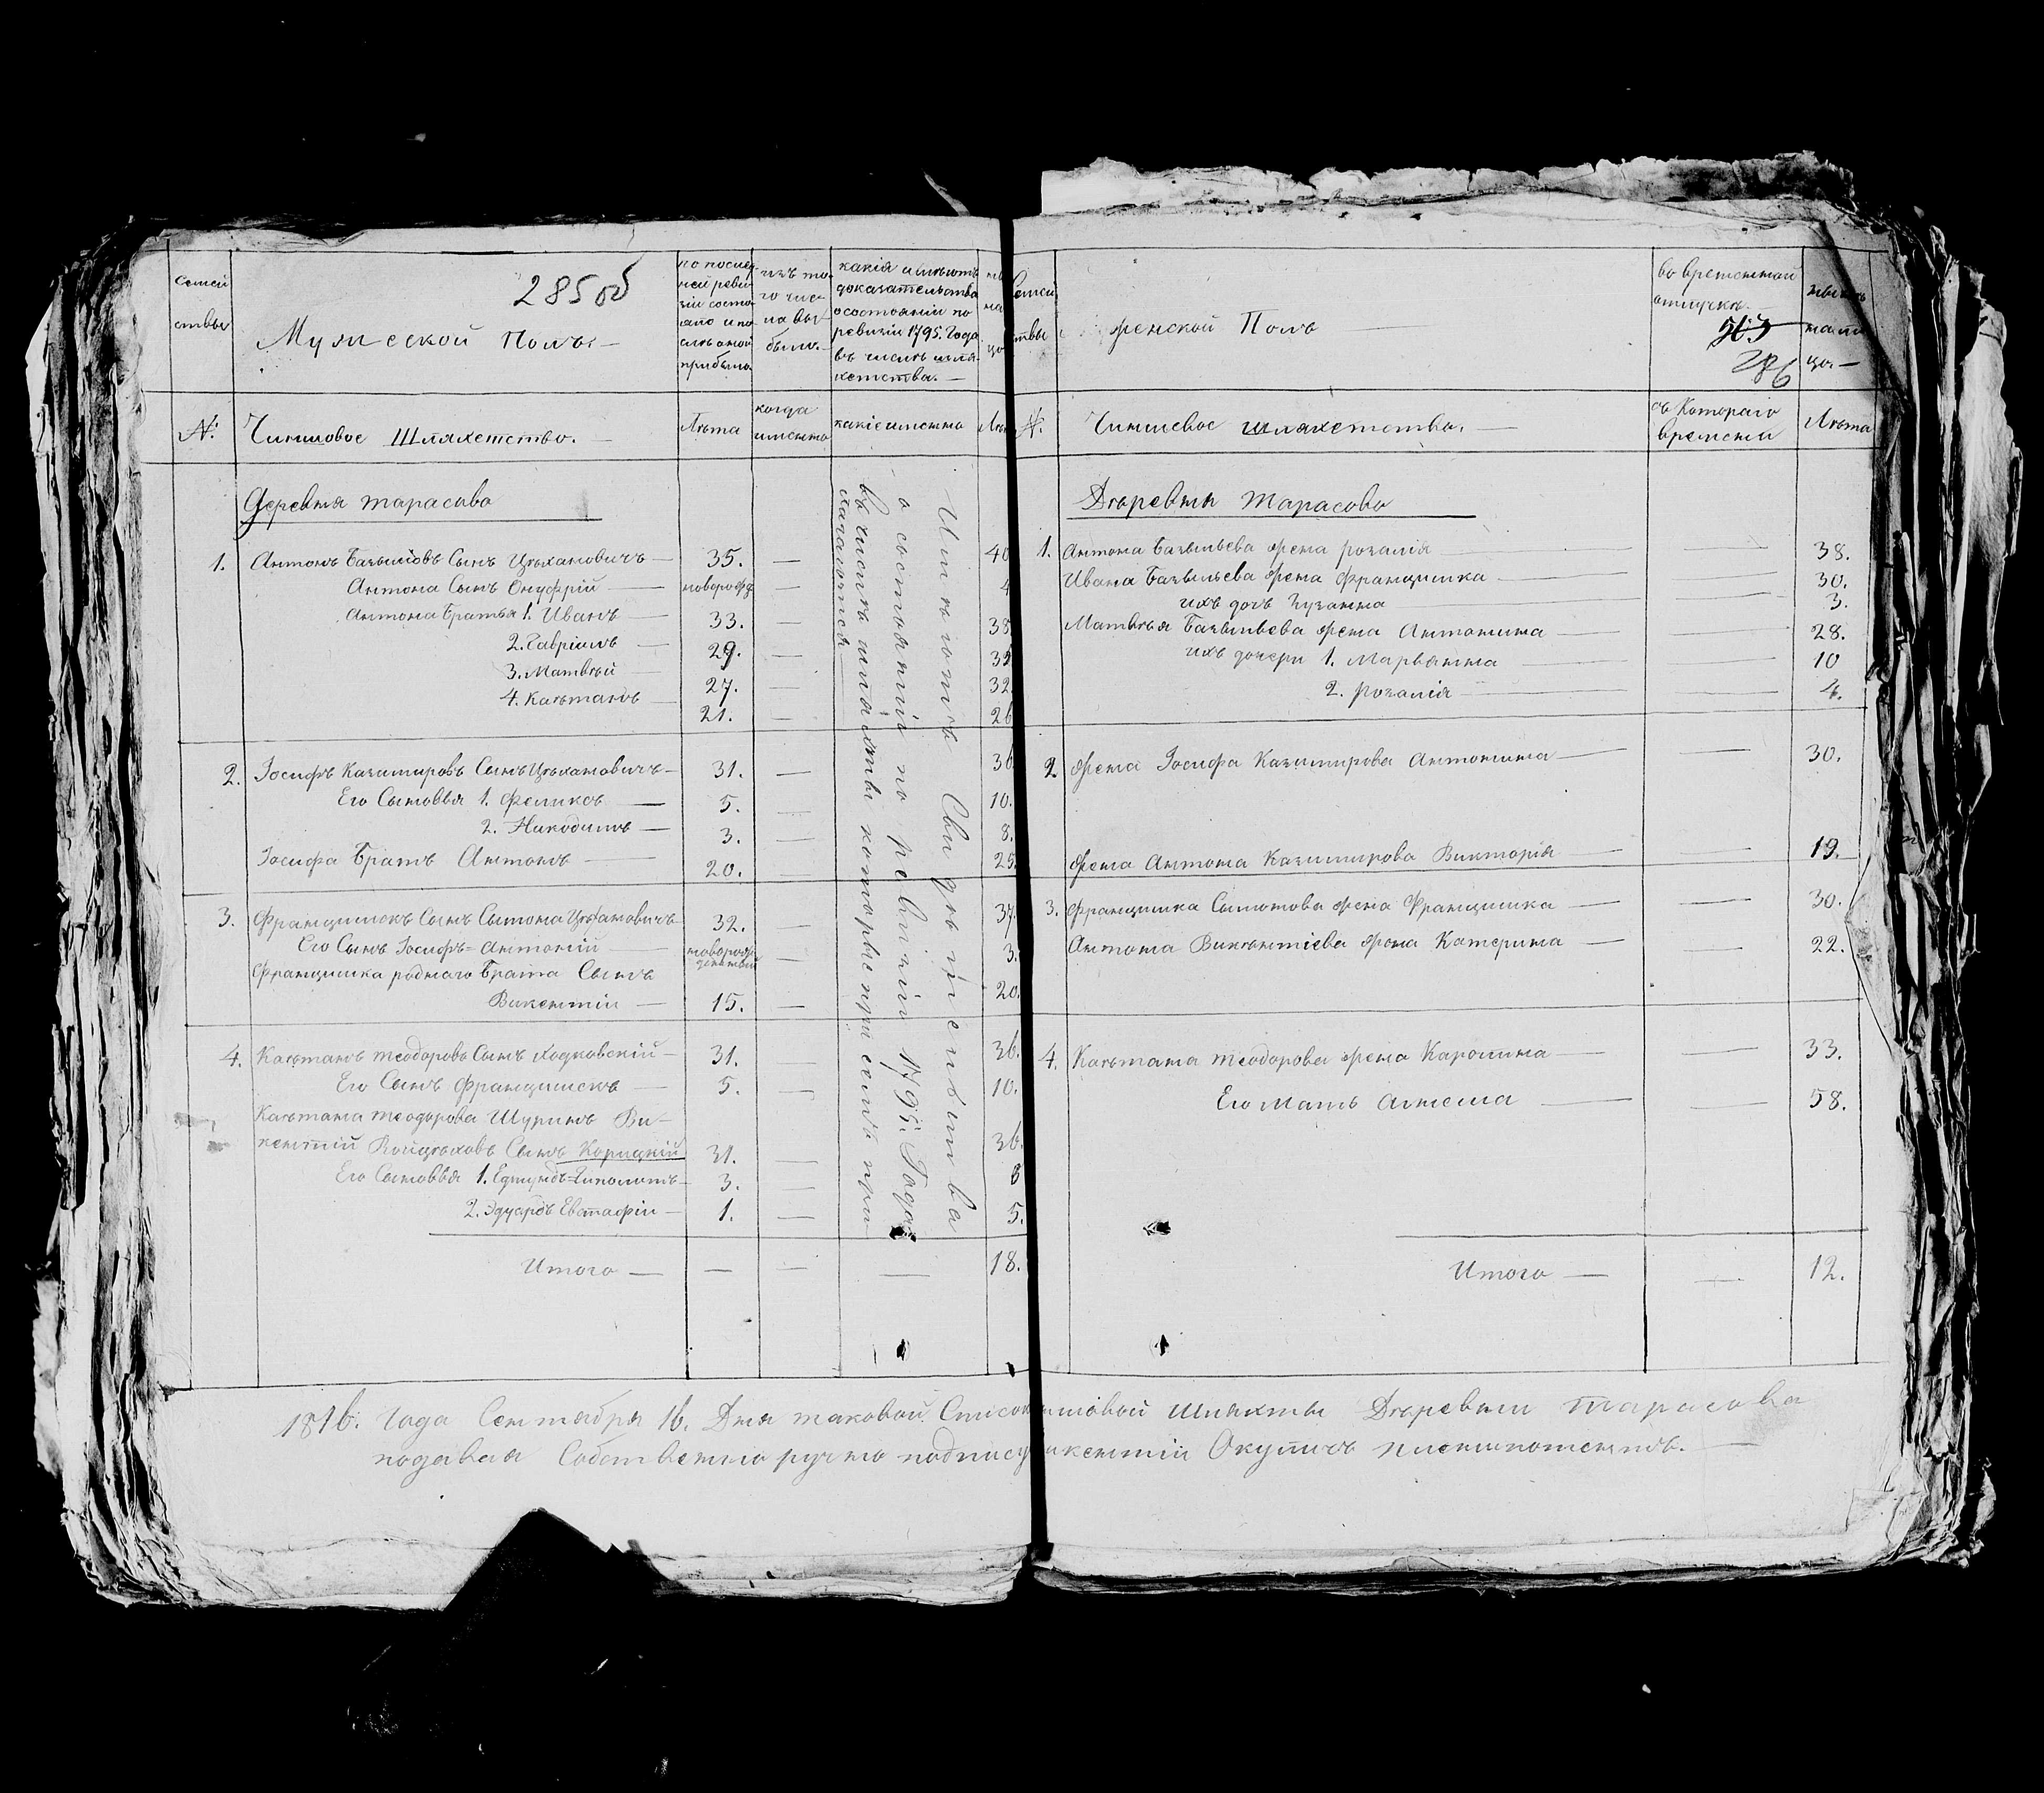 семей
ствы
285 об
Мужеской Полъ.—
по послед-
ней реви-
зіи состо-
яло и по-
слѣ оной
прибыло
изъ то-
го чис-
ла вы-
было.—
какія имѣютъ
доказательства
о состояніи по
ревизіи 1795. Года
въ числѣ шля-
хетства.—
№.
Чиншовое Шляхетство.—
Лѣта
когда
имянно
какіе имянно
Деревня тарасово
1. Антонъ Базылiовъ Сынъ Цѣхановичъ — 35. —
Антона Сынъ Онуфрій — новорожд. — 4
Антона Братья 1. Иванъ — 33. — 38
2. Гавріилъ — 29. —
3. Матвѣй — 27. — 32.
4. Каѣтанъ — 21. — 26
2. Іосифъ Казимировъ Сынъ Цѣхановичъ — 31. — 36
Его Сыновья 1. Феликсъ — 5. — 10.
2. Никодимъ — 3. — 8.
Іосифа Братъ Антонъ — 20. — 25.
3. Францишекъ Сынъ Сымона Цѣхановичъ 32. — 37.
Его Сынъ Іосифъ-Антоній — новорож-
денный — 3.
Францишка роднаго Брата Сынъ
Викентій — 15. — 20.
4. Каѣтанъ теодоровъ Сынъ Ходковскій — 31. — 36.
Его Сынъ Францишекъ — 5. — 10.
Каѣтана теодорова Шуринъ Ви-
кентій Войцѣховъ Сынъ Корицкій 31. — 36.
Его Сыновья 1. Едмундъ=Гиполитъ — 3. — 8
2. Эдуардъ Евстафій — 1. — 5.
Итого — — — — 18.
Имѣютъ Свидѣтельства
о состояніи по ревизіи 1795. Года
въ числѣ шляхты которые при семъ при-
лагаются —
Семей
ствы
женской Полъ
во временной
отлучкѣ.—
503
286
цо.—
№.
Чиншевое шляхетство.—
съ Котораго
времени
Лѣта
Дѣревня Тарасово
1. Антона Базыльева жена розалія — — 38.
Ивана Базыльева жена Францишка — — 30.
ихъ дочь Зузанна — — 3.
Матвѣя Базыльева жена Антонина — — 28.
ихъ дочери 1. Марьянна — — 10
2. розалія — — 4.
2 жена Іосифа Казимирова Антонина — — 30.
жена Антона Казимирова Викторія — — 19.
3. Францишка Сымонова жена Францишка — — 30.
Антона Викѣнтіева жена Катерина — — 22.
4. Каѣтана теодорова жена Каролина — — 33.
Его Мать Агнеша — — 58.
Итого — — 12.
1816. Года Сентября 16. Дня таковой Списокъ шовой шляхты Дѣревни Тарасова
подавая Собственноручно подпису икентій Окуличъ плениպотентъ.—